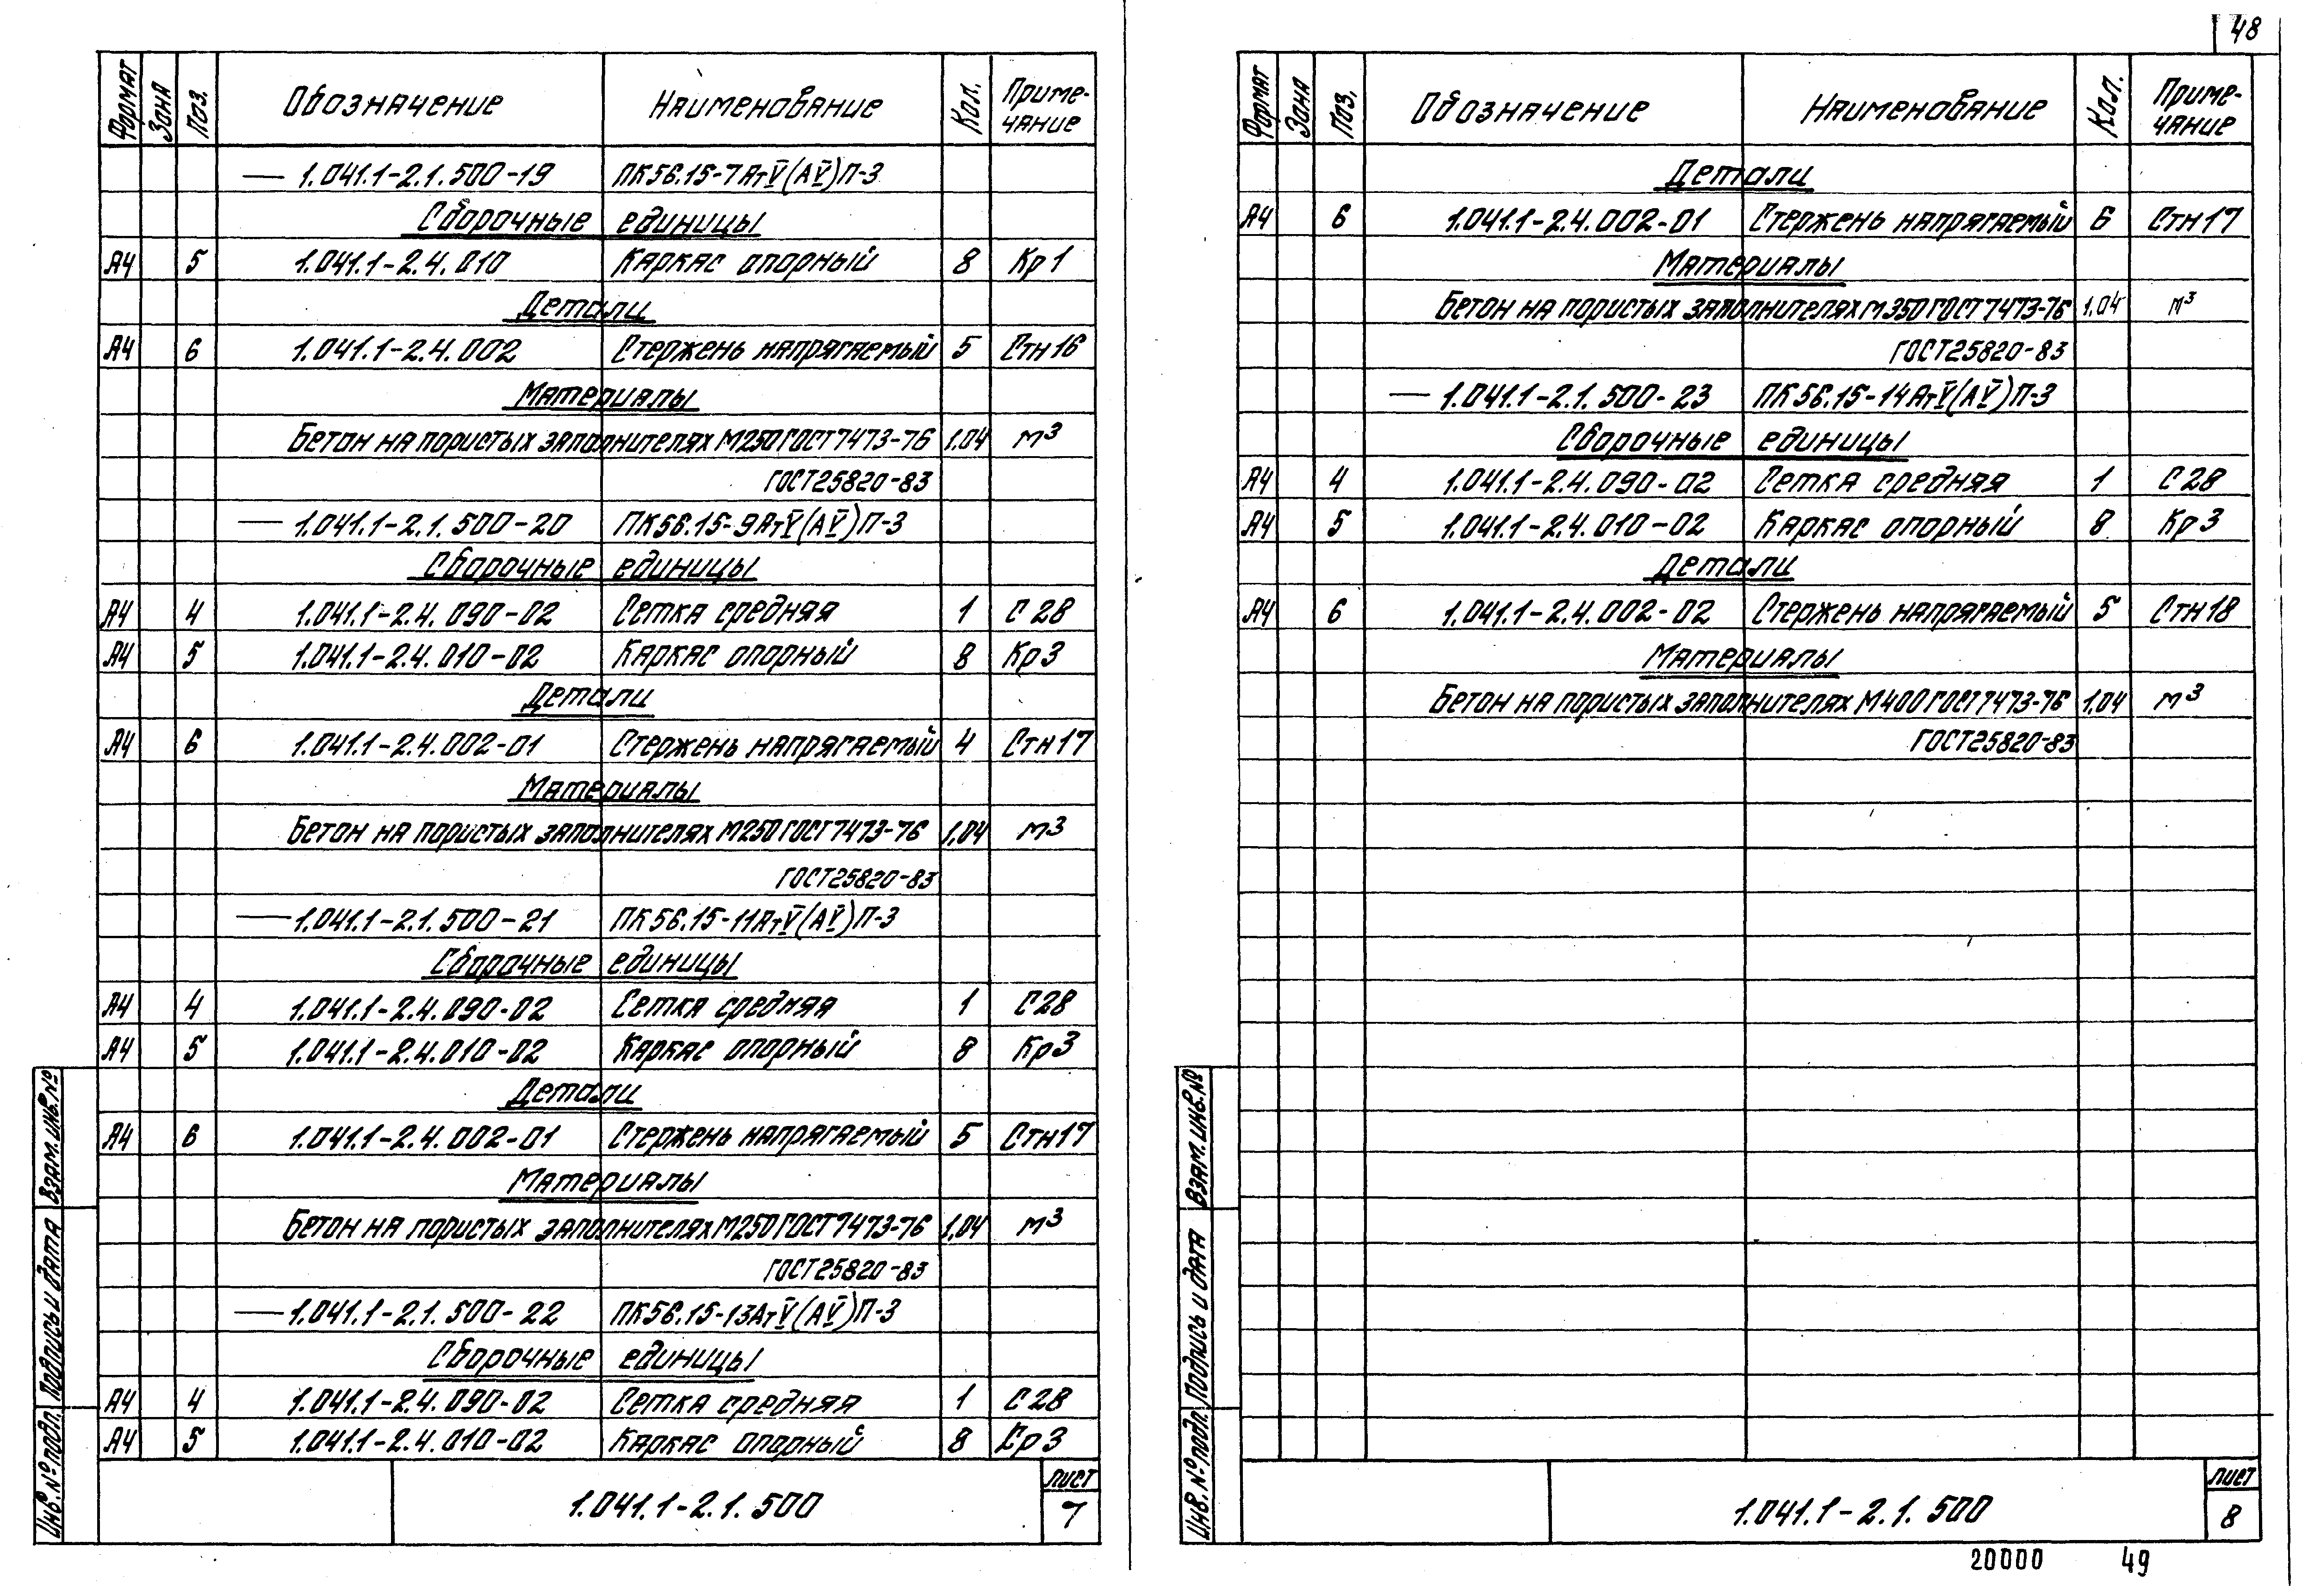 Формат Зона Поз. Обозначение Наименование Кол. Приме-
чание
— 1.041.1-2.1.500-19 ПК56.15-7АтV(АV)П-3
Сборочные единицы
А4 5 1.041.1-2.4.010 Каркас опорный 8 Кр1
Детали
А4 6 1.041.1-2.4.002 Стержень напрягаемый 5 Стн16
Материалы
Бетон на пористых заполнителях М250 ГОСТ7473-76 1,04 м³
ГОСТ25820-83
— 1.041.1-2.1.500-20 ПК56.15-9АтV(АV)П-3
Сборочные единицы
А4 4 1.041.1-2.4.090-02 Сетка средняя 1 С28
А4 5 1.041.1-2.4.010-02 Каркас опорный 8 Кр3
Детали
А4 6 1.041.1-2.4.002-01 Стержень напрягаемый 4 Стн17
Материалы
Бетон на пористых заполнителях М250 ГОСТ7473-76 1,04 м³
ГОСТ25820-83
— 1.041.1-2.1.500-21 ПК56.15-11АтV(АV)П-3
Сборочные единицы
А4 4 1.041.1-2.4.090-02 Сетка средняя 1 С28
А4 5 1.041.1-2.4.010-02 Каркас опорный 8 Кр3
Детали
А4 6 1.041.1-2.4.002-01 Стержень напрягаемый 5 Стн17
Материалы
Бетон на пористых заполнителях М250 ГОСТ7473-76 1,04 м³
ГОСТ25820-83
— 1.041.1-2.1.500-22 ПК56.15-13АтV(АV)П-3
Сборочные единицы
А4 4 1.041.1-2.4.090-02 Сетка средняя 1 С28
А4 5 1.041.1-2.4.010-02 Каркас опорный 8 Кр3
Инв.№подл. Подпись и дата Взам.инв.№
1.041.1-2.1.500
Лист
7
48
Формат Зона Поз. Обозначение Наименование Кол. Приме-
чание
Детали
А4 6 1.041.1-2.4.002-01 Стержень напрягаемый 6 Стн17
Материалы
Бетон на пористых заполнителях М350 ГОСТ7473-76 1,04 м³
ГОСТ25820-83
— 1.041.1-2.1.500-23 ПК56.15-14АтV(АV)П-3
Сборочные единицы
А4 4 1.041.1-2.4.090-02 Сетка средняя 1 С28
А4 5 1.041.1-2.4.010-02 Каркас опорный 8 Кр3
Детали
А4 6 1.041.1-2.4.002-02 Стержень напрягаемый 5 Стн18
Материалы
Бетон на пористых заполнителях М400 ГОСТ7473-76 1,04 м³
ГОСТ25820-83
Инв.№подл. Подпись и дата Взам.инв.№
1.041.1-2.1.500
Лист
8
20000 49